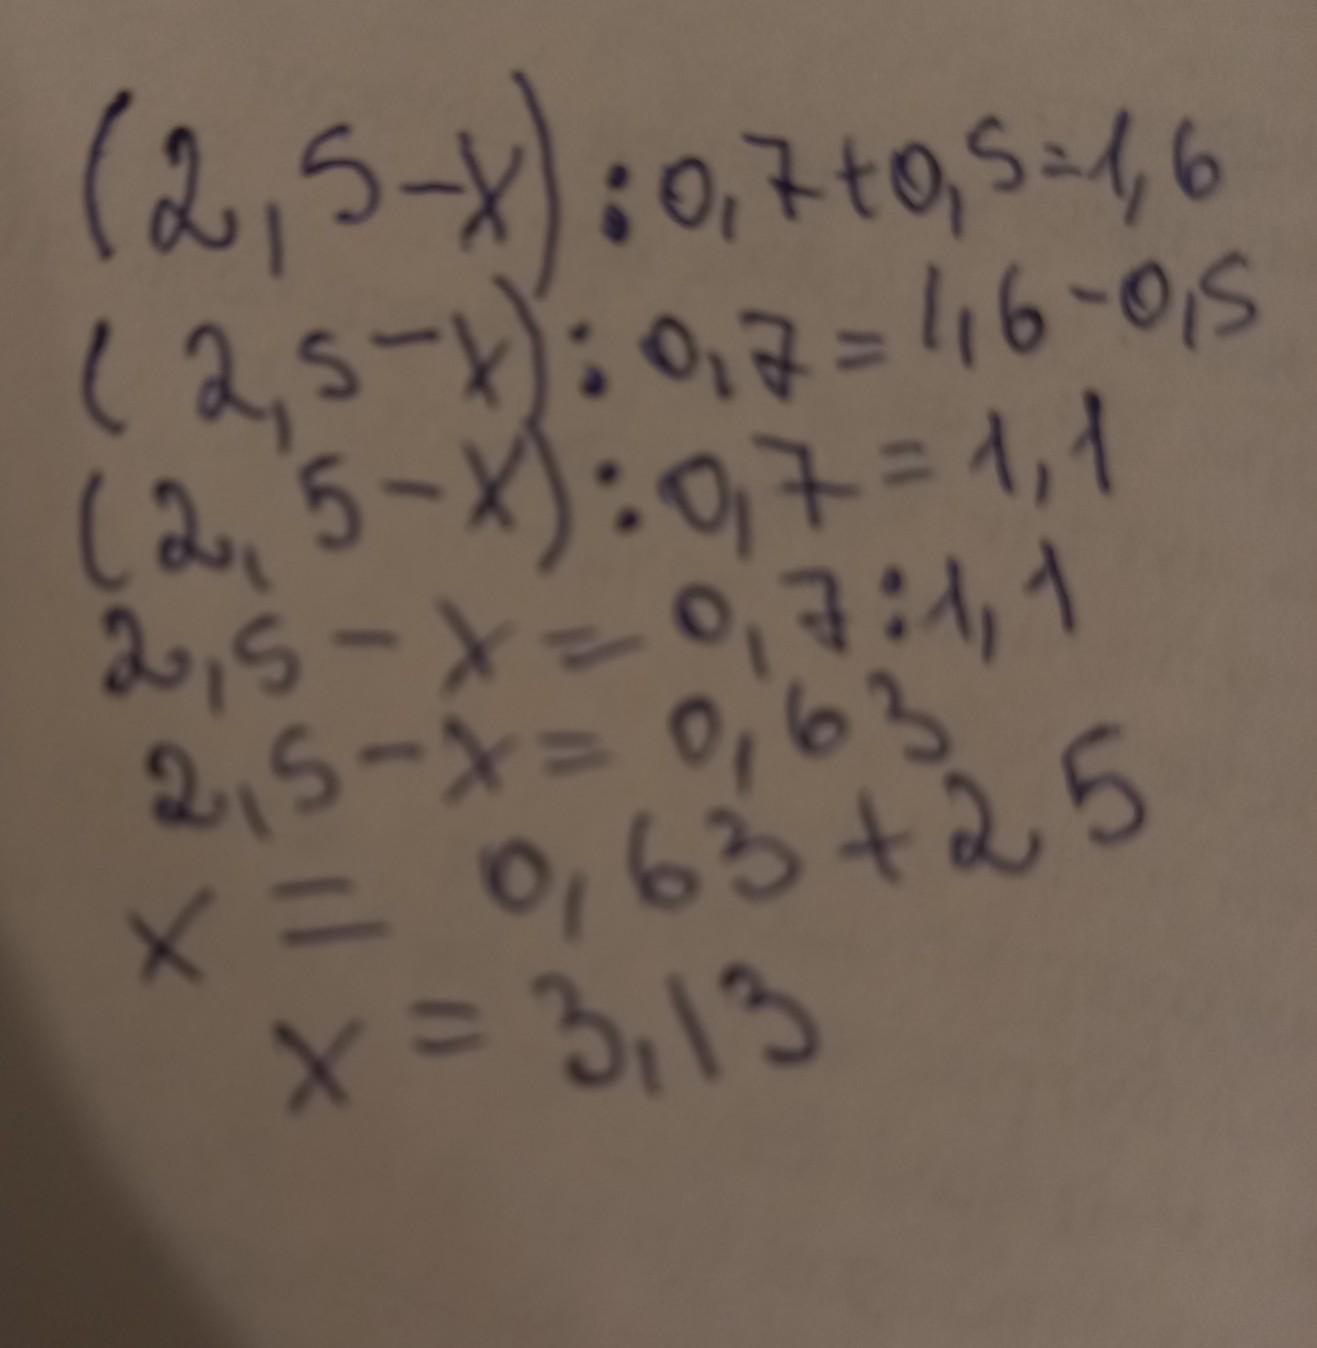 (2,5-x):0,7+0,5=1,6
(2,5-x):0,7=1,6-0,5
(2,5-x):0,7=1,1
2,5-x=0,7:1,1
2,5-x=0,63
x=0,63+2 5
x=3,13